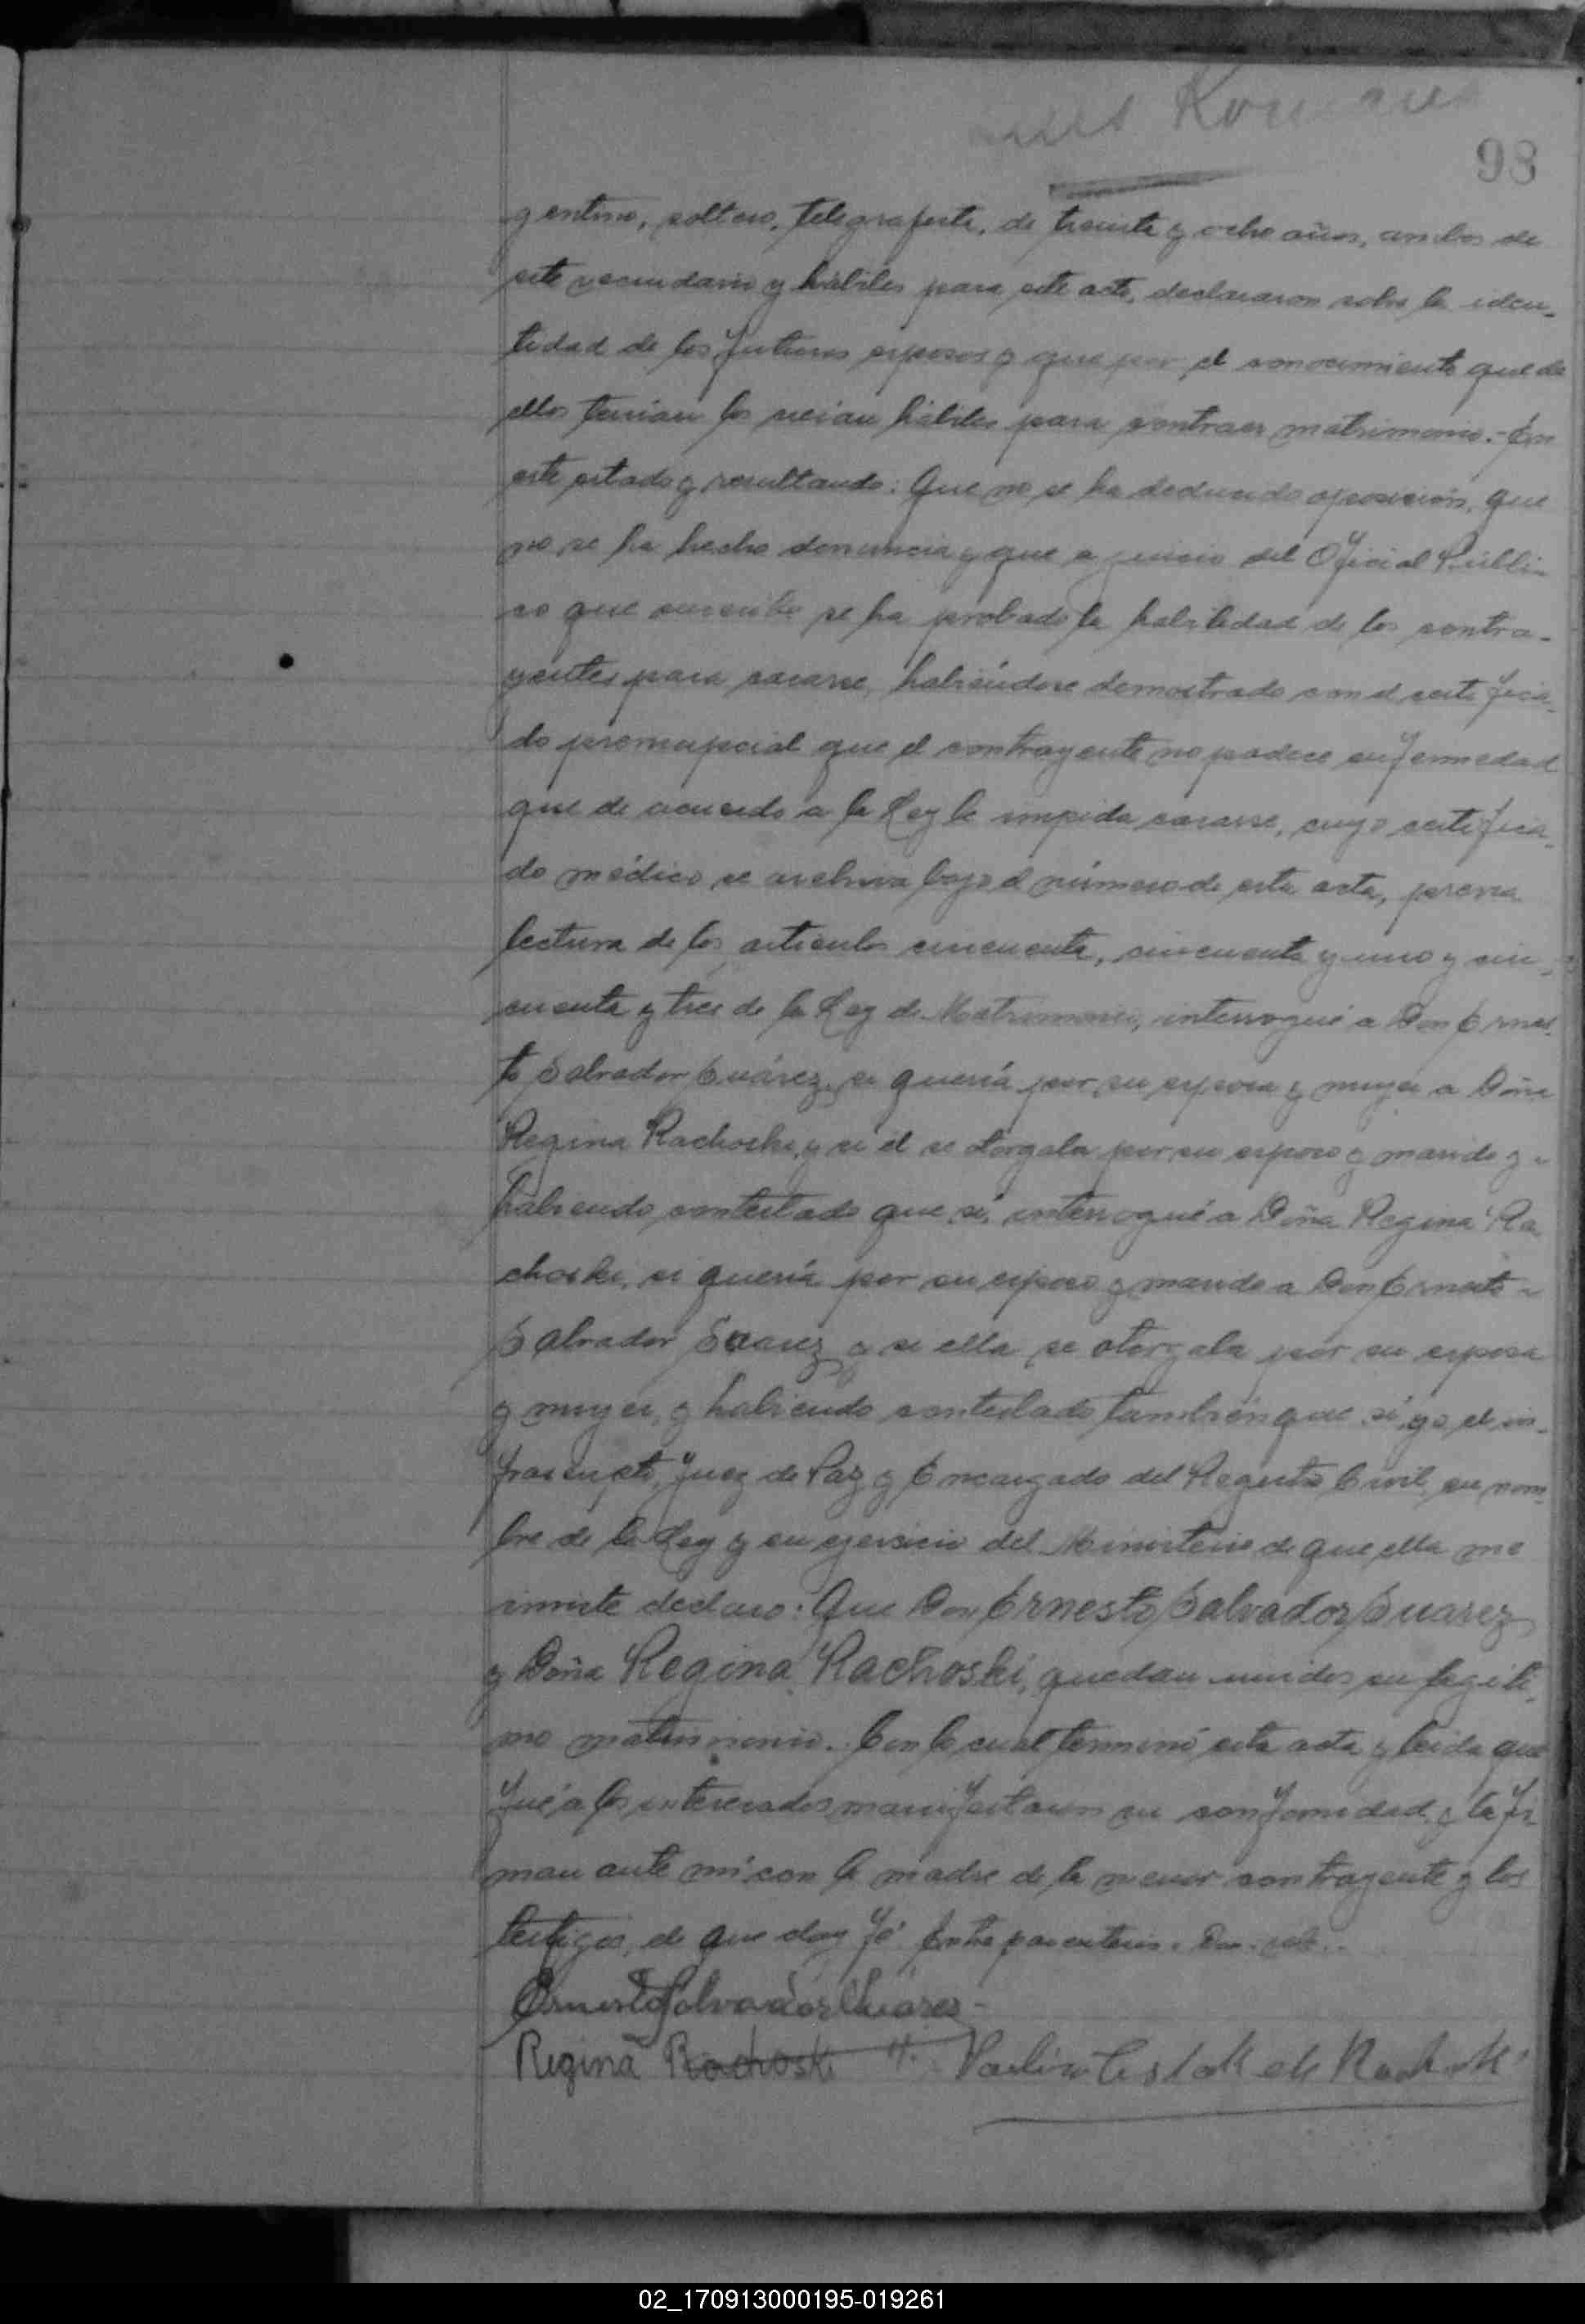 98
gentino, soltero, telegrafista, de treinta y ocho años, ambos de
este vecindario y hábiles para este acto, declararon sobre la iden-
tidad de los futuros esposos y que por el conocimiento que de
ellos tenian los creian hábiles para contraer matrimonio.- En
este estado y resultando: Que no se ha deducido oposición, que
no se ha hecho denuncia y que a juicio del Oficial Públi-
co que suscribe se ha probado la habilidad de los contra-
yentes para casarse, habiéndose demostrado con el certifica-
do prenupcial que el contrayente no padece enfermedad
que de acuerdo a la Ley le impida casarse, cuyo certifica-
do médico se archiva bajo el número de esta acta, previa
lectura de los articulos cincuenta, cincuenta y uno y cin-
cuenta y tres de la Ley de Matrimonio, interrogué a Don Ernes-
to Salvador Suárez, si quería por su esposa y mujer a Doña
Regina Rachoski, y si él se otorgaba por su esposo y marido y -
habiendo contestado que sí, interrogué a Doña Regina Ra
choski, si quería por su esposo y marido a Don Ernesto -
Salvador Suarez y si ella se otorgaba por su esposa
y mujer, y habiendo contestado también que sí, yo el in-
frascripto, Juez de Paz y Encargado del Registro Civil, en nom-
bre de la Ley y en ejercicio del Ministerio de que ella me
inviste declaro: Que Don Ernesto Salvador Suarez
y Doña Regina Rachoski, quedan unidos en legíti-
mo matrimonio. Con lo cual terminó esta acta y leida que
fué a los interesados manifestaron su conformidad y la fir
man ante mí con la madre de la menor contrayente y los
testigos, de que doy fé. Entre parentesis.
Ernesto Salvador Suárez -
Regina Rachoski de Rachoski
02_170913000195-019261